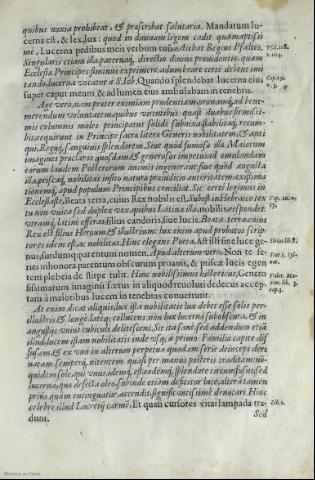 quibus noxia prohibeat, & præscribat salutaria. Mandatum lu-
cerna est, & lex lux: quod in diuinam legem cadit quàm aptissi-
mè, Lucerna pedibus meis verbum tuum dicebat Regius Psaltes.
Psal. 118.
v. 104.
Singularis etiam illa paternaq; directio diuinæ prouidentiæ quam
Ecclesiæ Principes summis exprimere adumbrare certè debent imi
tando, lucerna vocatur à S. Iob. Quando splendebat lucerna eius
Cap. 29.
v. 3.
super caput meum, & ad lumen eius ambulabam in tenebris.
Age verò, nam præter eximiam prudentiam, pronamq; ad bene-
merendum voluntatem, quibus virtutibus quasi duabus firmissi-
mis columnis moles principatus solidè subnixa, stabilitaq; recum-
bit, requirunt in Principe sacræ litteræ Generis nobilitatem, & anti
qui, Regijq; sanguinis splendorem. Siue quod fumosæ illæ Maiorum
imagines præclaros quosdam, & generosos impetus ad æmulandam
eorum laudem Posterorum animis ingenerant: siue quòd augusta
illa, priscaq; nobilitas insito naturæ præiudicio auctoritatem, existima
tionemq; apud populum Principibus conciliat. Sic certè legimus in
Ecclesiaste, Beata terra, cuius Rex nobilis est. Subest in Hebraico tex
Cap. 10. v.
17.
tu non vnica sed duplex vox, quibus Latina illa, nobilis, respondet:
vtramq; latinè efferas filius candoris, siue lucis. Beata terra cuius
Rex est filius Heroum, & illustrium: lux enim apud probatos scrip-
tores idem est, ac nobilitas. Hinc elegans Poeta. Ast illi sine luce ge-
Silius lib. 8.
nus, surdumq; parentum nomen. Apud alterum verò. Non te se-
Stat. 5. Syl-
uar.
ries inhonora parentum obscurum proauis, & priscæ lucis egen-
tem plebeia de stirpe tulit. Hinc nobilissimus historicus, Genero
Valer. Ma-
xim. lib. 3.
cap. 5.
sissimarum imaginum fœtus in aliquod reuoluti dedecus accep-
tam à maioribus lucem in tenebras conuertunt.
At enim dicat aliquis; lux ista nobilitatis lux debet esse solis per-
illustris & longè, latéq; collucens; non lux lucernæ subobscura, & in
angustijs vnius cubiculi delitescens. Sit ita sanè. sed addendum etiã
illud lucem istam nobilitatis inde vsq; à primo Familiæ capite dif
fusam, & ex vno in alterum perpetua quadam serie deinceps deri
uatam semperq; nitentem quasi per manus posteris traditam mi-
nus quidem sole, qui vnus, idemq; est, eodemq; splendore circumfusus: sed
lucerna, quæ defecta oleo, subinde etiam deficitur luce, alteri tamen
prius quàm extinguatur, accendit, significantissimè denotari. Hinc
celebre illud Lucretij carmẽ. Et quasi cursores vitai lampada tra-
Lib. 2.
dunt.
Sed